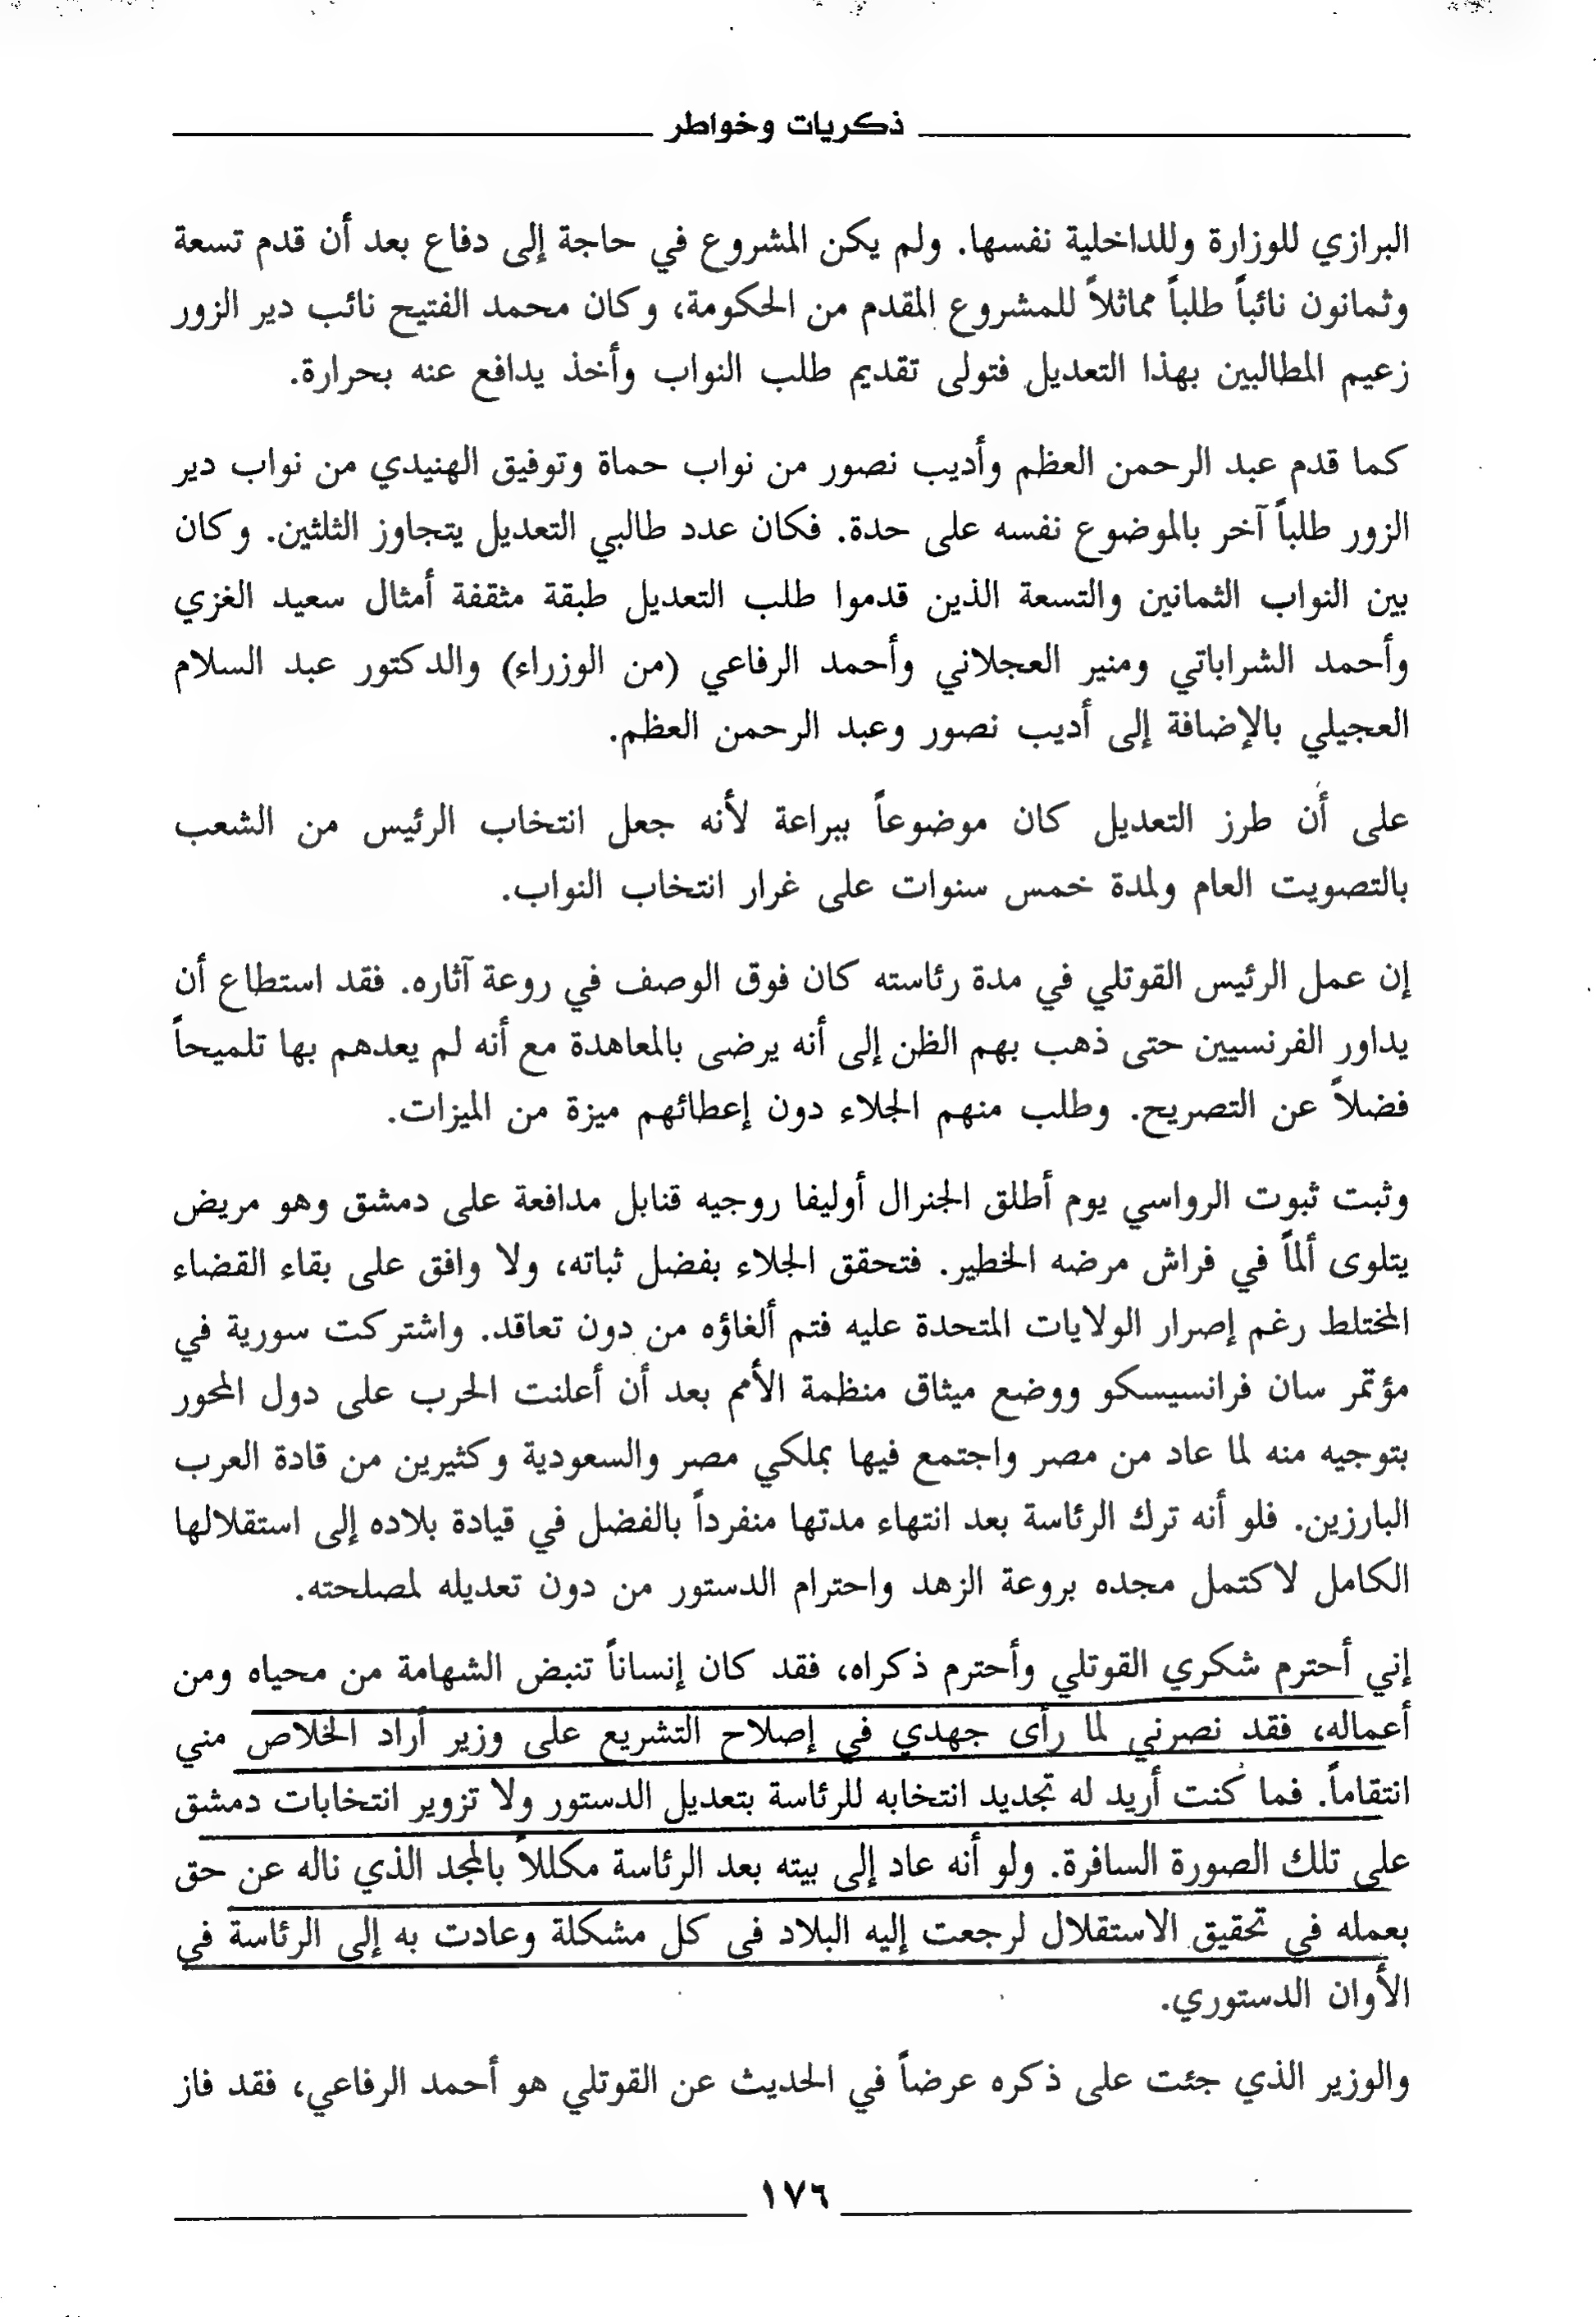 ذكريات وخواطر
البرازي للوزارة وللداخلية نفسها. ولم يكن المشروع في حاجة إلى دفاع بعد أن قدم تسعة
وثمانون نائباً طلباً مماثلاً للمشروع المقدم من الحكومة، وكان محمد الفتيح نائب دير الزور
زعيم المطالبين بهذا التعديل فتولى تقديم طلب النواب وأخذ يدافع عنه بحرارة.
كما قدم عبد الرحمن العظم وأديب نصور من نواب حماة وتوفيق الهنيدي من نواب دير
الزور طلباً آخر بالموضوع نفسه على حدة. فكان عدد طالبي التعديل يتجاوز الثلثين. وكان
بين النواب الثمانين والتسعة الذين قدموا طلب التعديل طبقة مثقفة أمثال سعيد الغزي
وأحمد الشراباتي ومنير العجلاني وأحمد الرفاعي (من الوزراء) والدكتور عبد السلام
العجيلي بالإضافة إلى أديب نصور وعبد الرحمن العظم.
على أن طرز التعديل كان موضوعاً ببراعة لأنه جعل انتخاب الرئيس من الشعب
بالتصويت العام ولمدة خمس سنوات على غرار انتخاب النواب.
إن عمل الرئيس القوتلي في مدة رئاسته كان فوق الوصف في روعة آثاره. فقد استطاع أن
يداور الفرنسيين حتى ذهب بهم الظن إلى أنه يرضى بالمعاهدة مع أنه لم يعدهم بها تلميحاً
فضلاً عن التصريح. وطلب منهم الجلاء دون إعطائهم ميزة من الميزات.
وثبت ثبوت الرواسي يوم أطلق الجنرال أوليفا روجيه قنابل مدافعة على دمشق وهو مريض
يتلوى ألماً في فراش مرضه الخطير. فتحقق الجلاء بفضل ثباته، ولا وافق على بقاء القضاء
المختلط رغم إصرار الولايات المتحدة عليه فتم ألغاؤه من دون تعاقد. واشتركت سورية في
مؤتمر سان فرانسيسكو ووضع ميثاق منظمة الأمم بعد أن أعلنت الحرب على دول المحور
بتوجيه منه لما عاد من مصر واجتمع فيها بملكي مصر والسعودية وكثيرين من قادة العرب
البارزين. فلو أنه ترك الرئاسة بعد انتهاء مدتها منفرداً بالفضل في قيادة بلاده إلى استقلالها
الكامل لاكتمل مجده بروعة الزهد واحترام الدستور من دون تعديله لمصلحته.
إني أحترم شكري القوتلي وأحترم ذكراه، فقد كان إنساناً تنبض الشهامة من محياه ومن
أعماله، فقد نصرني لما رأى جهدي في إصلاح التشريع على وزير أراد الخلاص مني
انتقاماً. فما كنت أريد له تجديد انتخابه للرئاسة بتعديل الدستور ولا تزوير انتخابات دمشق
على تلك الصورة السافرة. ولو أنه عاد إلى بيته بعد الرئاسة مكللاً بالمجد الذي ناله عن حق
بعمله في تحقيق الاستقلال لرجعت إليه البلاد في كل مشكلة وعادت به إلى الرئاسة في
الأوان الدستوري.
والوزير الذي جئت على ذكره عرضاً في الحديث عن القوتلي هو أحمد الرفاعي، فقد فاز
١٧٦